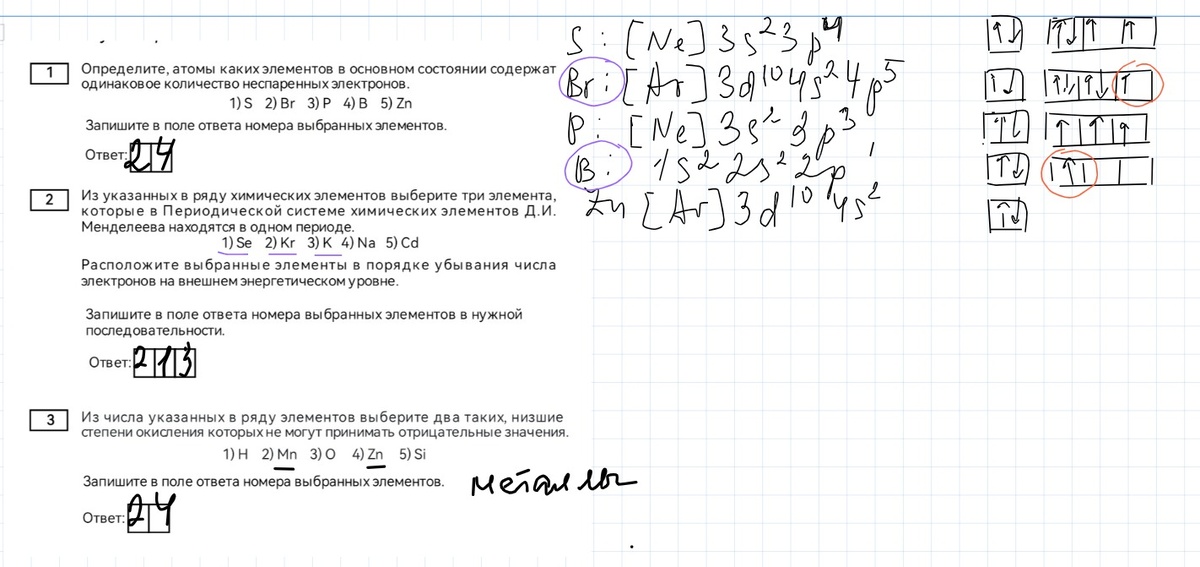 1
Определите, атомы каких элементов в основном состоянии содержат
одинаковое количество неспаренных электронов.
1) S 2) Br 3) P 4) B 5) Zn
Запишите в поле ответа номера выбранных элементов.
Ответ: 24
2
Из указанных в ряду химических элементов выберите три элемента,
которые в Периодической системе химических элементов Д.И.
Менделеева находятся в одном периоде.
1) Se 2) Kr 3) K 4) Na 5) Cd
Расположите выбранные элементы в порядке убывания числа
электронов на внешнем энергетическом уровне.
Запишите в поле ответа номера выбранных элементов в нужной
последовательности.
Ответ: 213
3
Из числа указанных в ряду элементов выберите два таких, низшие
степени окисления которых не могут принимать отрицательные значения.
1) H 2) Mn 3) O 4) Zn 5) Si
Запишите в поле ответа номера выбранных элементов.
металлы
Ответ: 24
S : [Ne] 3s² 3p⁴ ↑↓ ↑↓ ↑ ↑
Br : [Ar] 3d¹⁰ 4s² 4p⁵ ↑↓ ↑↓ ↑↓ ↑
P : [Ne] 3s² 3p³ ↑↓ ↑ ↑ ↑
B : 1s² 2s² 2p¹ ↑↓ ↑
Zn [Ar] 3d¹⁰ 4s² ↑↓